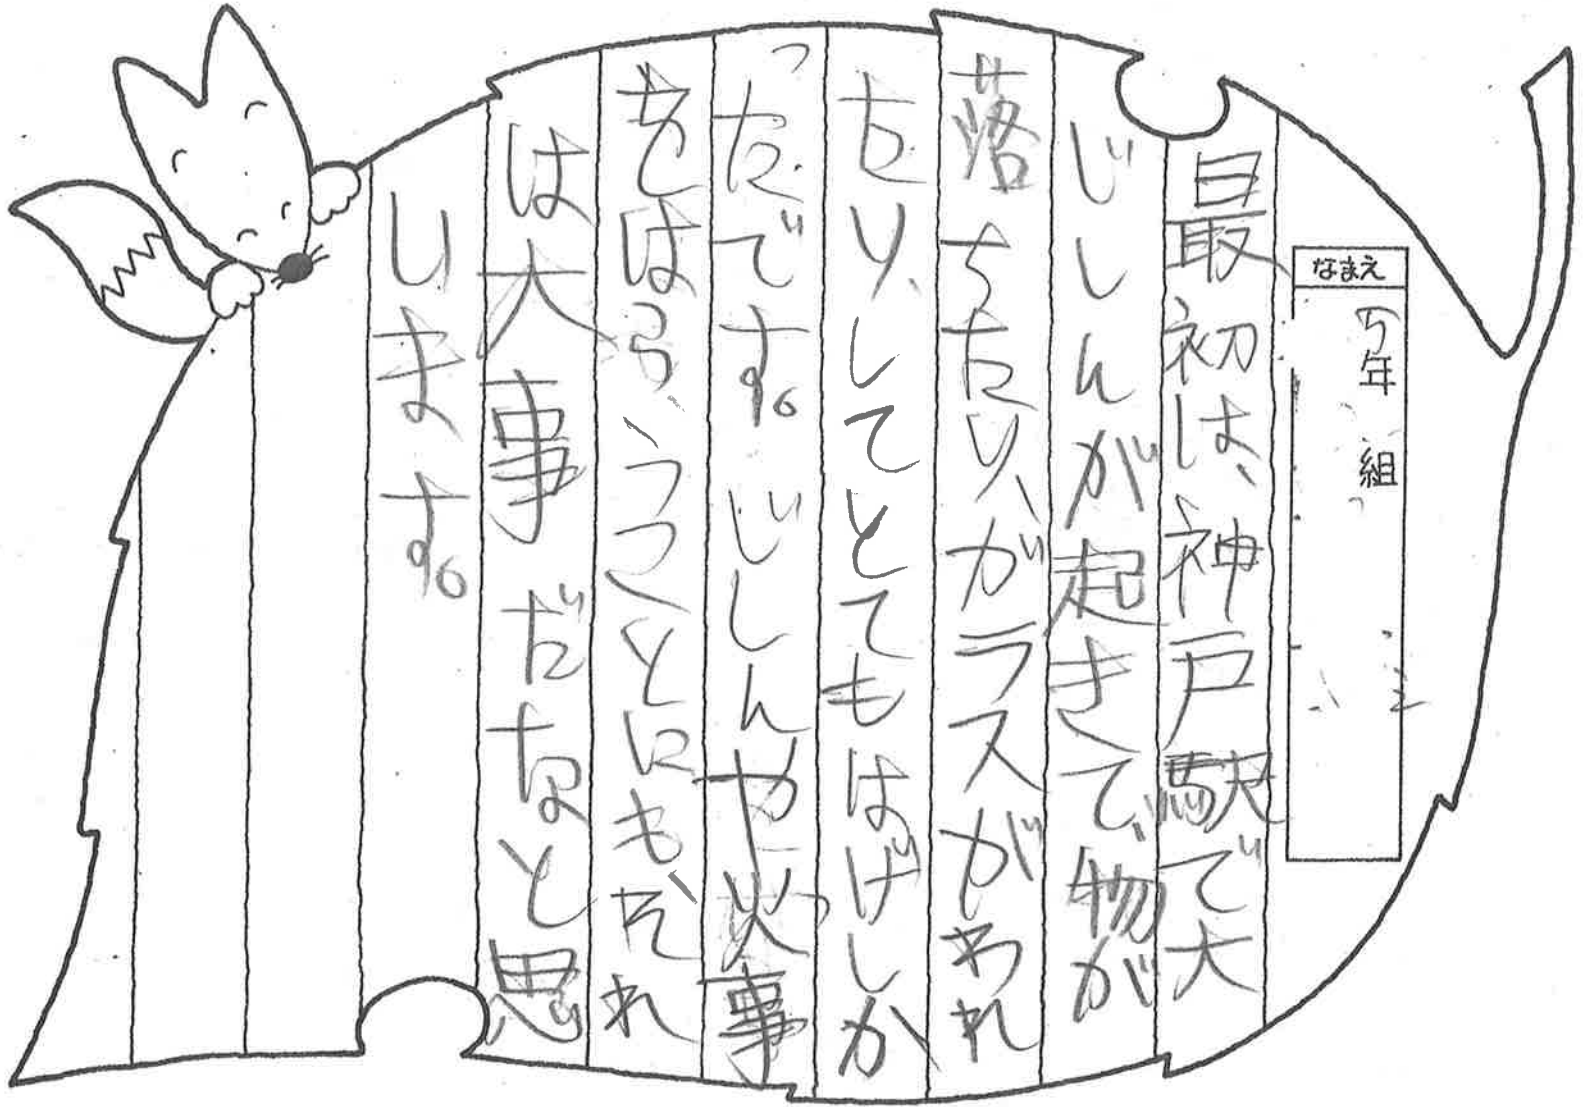 なまえ
5年 組
最初は、神戸駅で大
じしんが起きて、物が
落ちたり、ガラスがわれ
たり、してとてもはげしか
ったです。じしんや火事
をはらうことにも、それ
は大事だなと思
います。